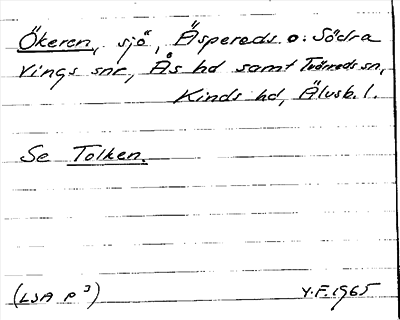 Ökeren, sjö, Äspereds o. Södra
Vings snr, Ås hd samt Tvärreds sn,
Kinds hd, Älvsb. l.
Se Tolken.
(LSA P 3)
Y.F. 1965